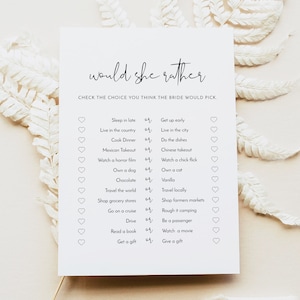 would she rather
CHECK THE CHOICE YOU THINK THE BRIDE WOULD PICK
Sleep in late or Get up early
Live in the country or Live in the city
Cook Dinner or Do the dishes
Mexican Takeout or Chinese takeout
Watch a horror film or Watch a chick flick
Own a dog or Own a cat
Chocolate or Vanilla
Travel the world or Travel locally
Shop grocery stores or Shop farmers markets
Go on a cruise or Rough it camping
Drive or Be a passenger
Read a book or Watch a movie
Get a gift or Give a gift